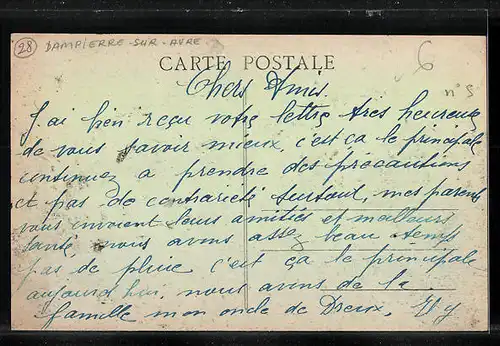 28 DAMPIERRE-SUR-AVRE
6
CARTE POSTALE
n° 5
Chers Amis.
J'ai bien reçu votre lettre tres heureux
de vous savoir mieux, c'est ça le principale
continuez a prendre des précautions
et pas de contrarieté surtout, mes parents
vous envoient leurs amitiés et meilleurs
santé, nous avons assez beau temps
pas de pluie c'est ça le principale
aujourd hui, nous avons de la
famille mon oncle de Dreux.